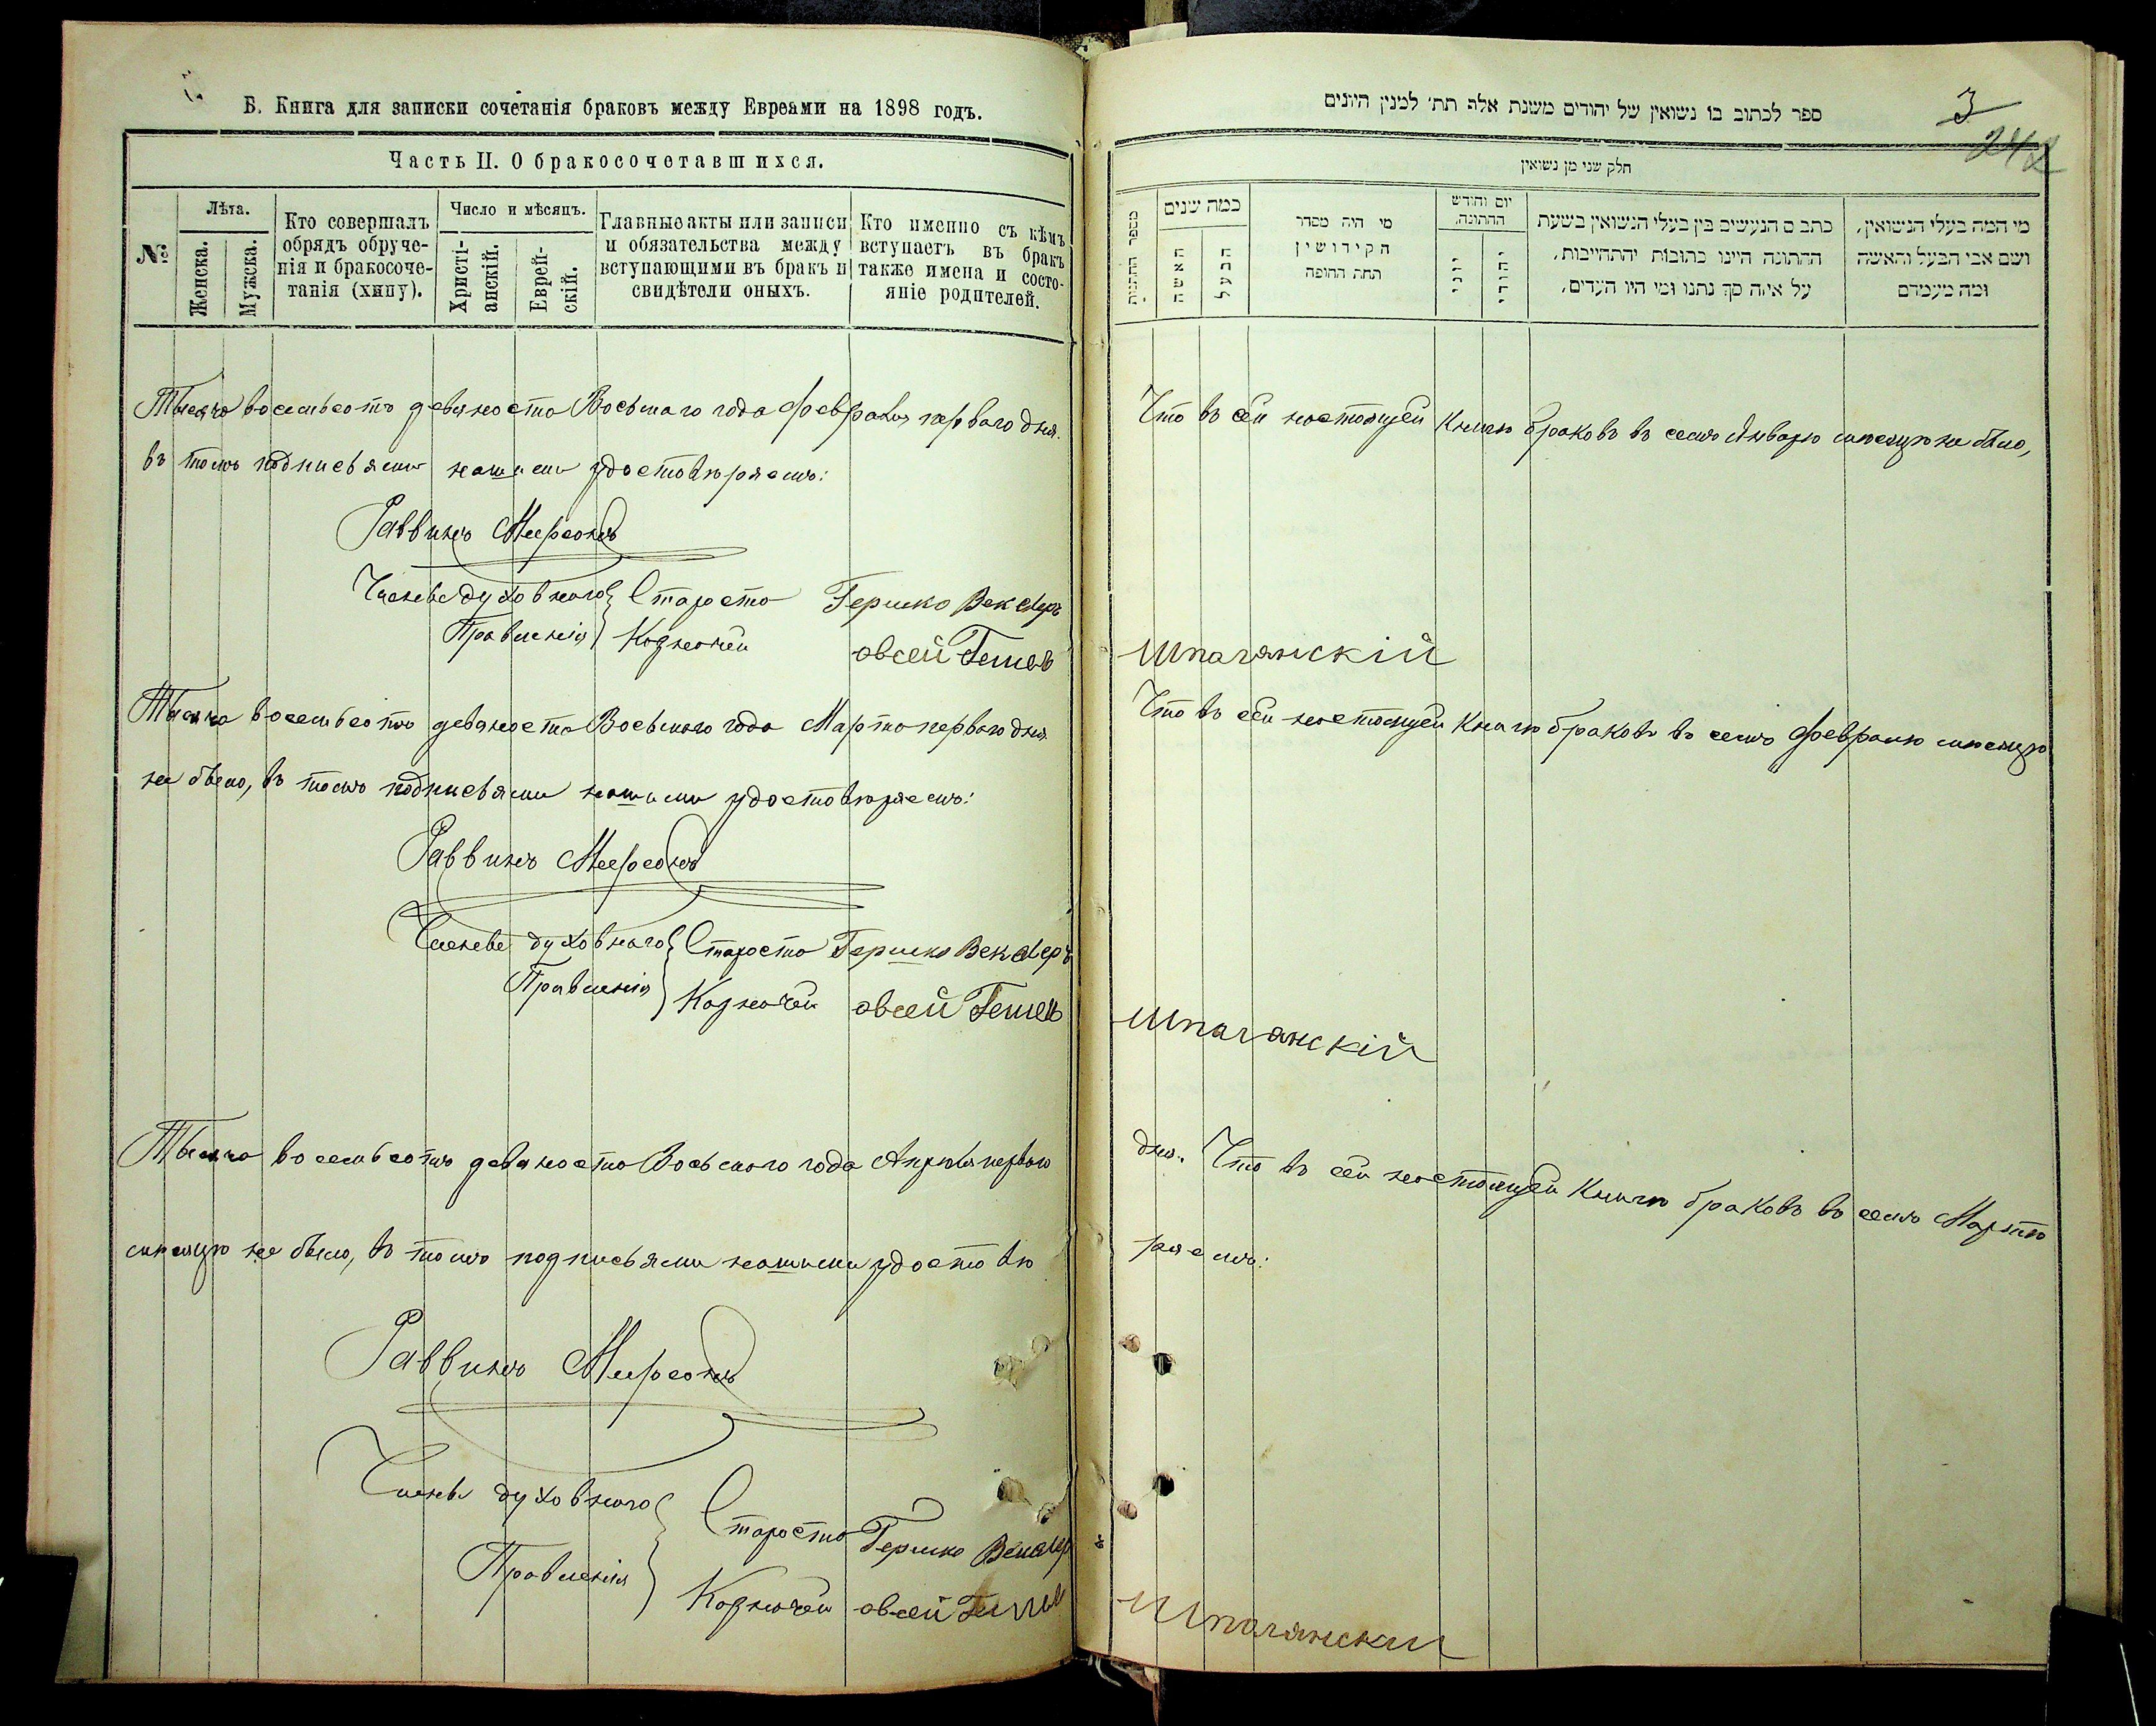 Б. Книга для записки сочетанія браковъ между Евреями на 1898 годъ.
Часть II. О бракосочетавшихся.
№
Лѣта.
Женска.
Мужска.
Кто совершалъ
обрядъ обруче-
нія и бракосоче-
танія (хипу).
Число и мѣсяцъ.
Христі-
анскій.
Еврей-
скій.
Главные акты или записи
и обязательства между
вступающими въ бракъ и
свидѣтели оныхъ.
Кто именно съ кѣмъ
вступаетъ въ бракъ
также имена и состо-
яніе родителей.
ספר לכתוב בו נשואין של יהודים משנת אלף תת׳ למנין היונים
3
242
חלק שני מן נשואין
מספר החתונות
כמה שנים
האשה
הבעל
מי היה מסדר
הקידושין
תחת החופה
יום וחודש
החתונה
יוני
יהודי
כתבים הנעשים בין בעלי הנשואין בשעת
החתונה היינו כתובות והתחייבות,
על איזה סך נתנו ומי היו העדים,
מי המה בעלי הנשואין,
ושם אבי הבעל והאשה
ומה מעמדם
Тысяча восемьсотъ девяносто Восьмаго года февраля перваго дня. Что въ сей настоящей Книгѣ браковъ въ семъ Январѣ мѣсяцѣ не было,
въ томъ подписьями нашими удостовѣряемъ:
Раввинъ Меерсонъ
Члены духовнаго Староста Гершко Векслеръ
Правленія Казначей овсей Гешев Шпагянскій
Тысяча восемьсотъ девяносто Восьмаго года Марта перваго дня Что въ сей настоящей Книгѣ браковъ въ семъ февралѣ мѣсяцѣ
не было, въ томъ подписьями нашими удостовѣряемъ:
Раввинъ Меерсонъ
Члены духовнаго Староста Гершко Векслеръ
Правленія Казначей овсей Гешев Шпагянскій
Тысяча восемьсотъ девяносто Восьмаго года Апрѣля перваго дня. Что въ сей настоящей Книгѣ браковъ въ семъ Мартѣ
мѣсяцѣ не было, въ томъ подписьями нашими удостовѣ ряемъ:
Раввинъ Меерсонъ
Члены духовнаго Староста Гершко Векслер
Правленія Казначей овсей Шпагянский